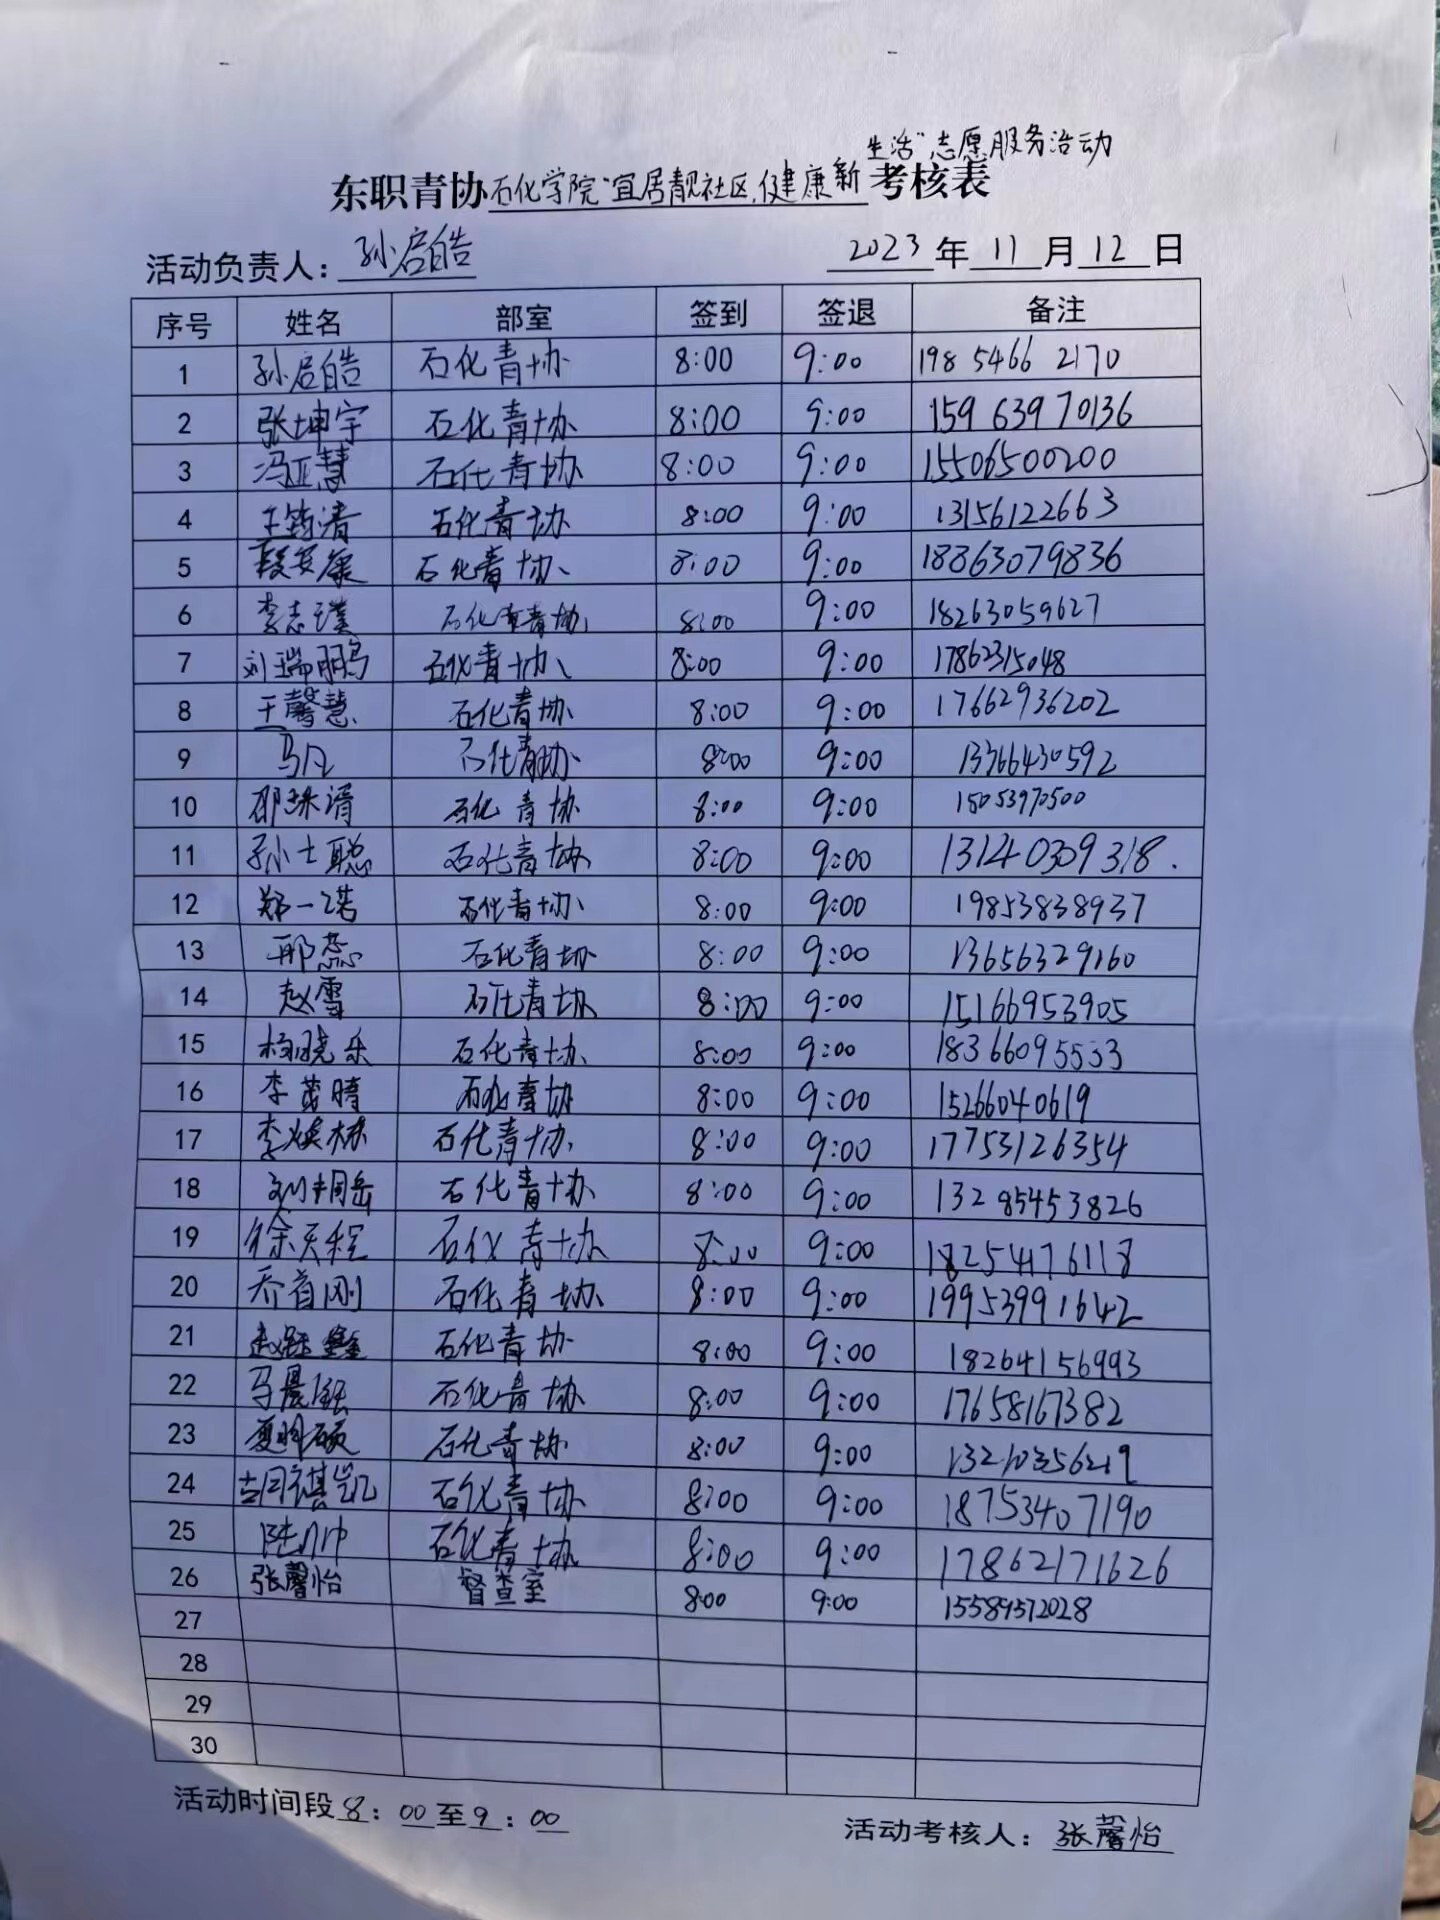 生活”志愿服务活动
东职青协石化学院“宜居靓社区,健康新考核表
活动负责人：孙启皓 2023年11月12日
序号 姓名 部室 签到 签退 备注
1 孙启皓 石化青协 8:00 9:00 198 5466 2170
2 张坤宇 石化青协 8:00 9:00 159 639 70136
3 冯亚慧 石化青协 8:00 9:00 15506500200
4 王筠清 石化青协 8:00 9:00 13156122663
5 段安康 石化青协 8:00 9:00 18863079836
6 李志璞 石化青协 8:00 9:00 18263059627
7 刘瑞鹏 石化青协 8:00 9:00 17862315048
8 王馨慧 石化青协 8:00 9:00 17662936202
9 马凡 石化青协 8:00 9:00 13366430592
10 石化青协 8:00 9:00 15053970500
11 孙士聪 石化青协 8:00 9:00 13140309318.
12 郑一诺 石化青协 8:00 9:00 19853838937
13 邢蕊 石化青协 8:00 9:00 13656329160
14 赵雪 石化青协 8:00 9:00 15166953905
15 杨晓乐 石化青协 8:00 9:00 18366095533
16 石化青协 8:00 9:00 15266040619
17 李焕林 石化青协 8:00 9:00 17753126354
18 刘桐岳 石化青协 8:00 9:00 132 85453826
19 徐天程 石化青协 8:00 9:00 18254176118
20 乔首刚 石化青协 8:00 9:00 19953991642
21 石化青协 8:00 9:00 18264156993
22 马晨钰 石化青协 8:00 9:00 17658167382
23 石化青协 8:00 9:00
24 石化青协 8:00 9:00 18753407190
25 陆帅 石化青协 8:00 9:00 17862171626
26 张馨怡 督查室 8:00 9:00 15589572028
27
28
29
30
活动时间段8：00至9：00
活动考核人：张馨怡